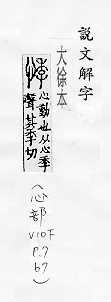 說文解字
大徐本
悸 心動也从心季
聲其季切
(心部
V10下
P.7
b7)